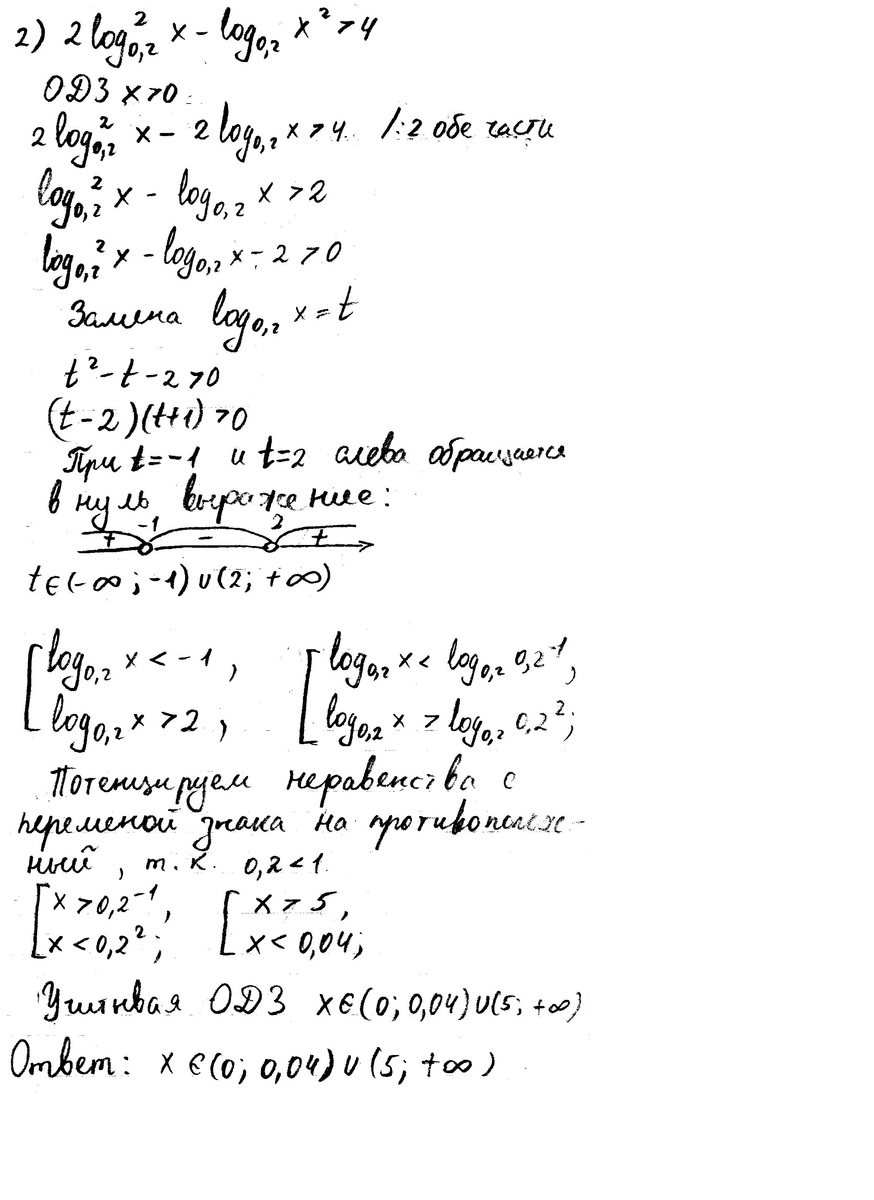 2) 2 log²₀,₂ x - log₀,₂ x² > 4
ОДЗ x > 0
2 log²₀,₂ x - 2 log₀,₂ x > 4 /:2 обе части
log₀,₂² x - log₀,₂ x > 2
log₀,₂² x - log₀,₂ x - 2 > 0
Замена log₀,₂ x = t
t² - t - 2 > 0
(t - 2)(t+1) > 0
При t = -1 и t=2 слева обращается
в нуль выражение:
-1 2
+ - +
t ∈ (-∞; -1) ∪ (2; +∞)
[ log₀,₂ x < -1, [ log₀,₂ x < log₀,₂ 0,2⁻¹,
log₀,₂ x > 2, log₀,₂ x > log₀,₂ 0,2²;
Потенцируем неравенства с
переменой знака на противополож-
ный, т.к. 0,2 < 1.
[ x > 0,2⁻¹, [ x > 5,
x < 0,2²; x < 0,04;
Учитывая ОДЗ x ∈ (0; 0,04) ∪ (5; +∞)
Ответ: x ∈ (0; 0,04) ∪ (5; +∞)